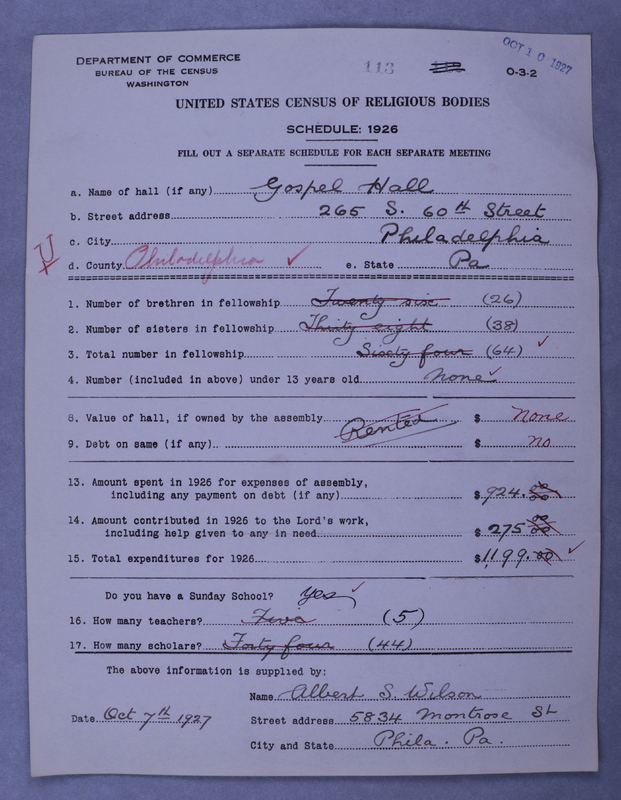 DEPARTMENT OF COMMERCE
BUREAU OF THE CENSUS
WASHINGTON
113
OCT 10 1927
O-3-2
UNITED STATES CENSUS OF RELIGIOUS BODIES
SCHEDULE: 1926
FILL OUT A SEPARATE SCHEDULE FOR EACH SEPARATE MEETING
a. Name of hall (if any) Gospel Hall
b. Street address 265 S. 60th Street
c. City Philadelphia
d. County Philadelphia ✓ e. State Pa
1. Number of brethren in fellowship Twenty six (26)
2. Number of sisters in fellowship Thirty eight (38)
3. Total number in fellowship Sixty four (64) ✓
4. Number (included in above) under 13 years old none ✓
8. Value of hall, if owned by the assembly Rented $ none
9. Debt on same (if any) $ no
13. Amount spent in 1926 for expenses of assembly,
including any payment on debt (if any) $ 924.00
14. Amount contributed in 1926 to the Lord's work,
including help given to any in need $ 275 00
15. Total expenditures for 1926 $ 1199.00 ✓
Do you have a Sunday School? yes ✓
16. How many teachers? Five (5)
17. How many scholars? Forty four (44)
The above information is supplied by:
Name Albert S. Wilson
Date Oct 7th 1927
Street address 5834 Montrose St
City and State Phila. Pa.